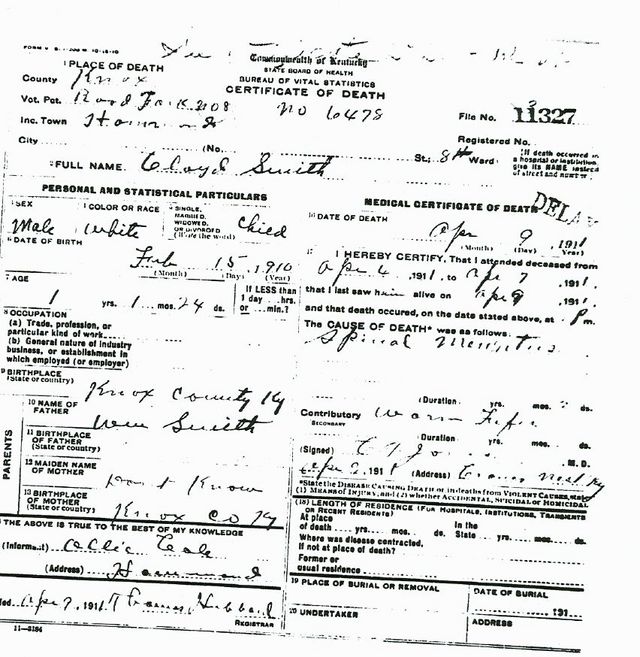 Commonwealth of Kentucky
STATE BOARD OF HEALTH
BUREAU OF VITAL STATISTICS
CERTIFICATE OF DEATH
1 PLACE OF DEATH
County Knox
Vot. Pct. Road Fork No 8
No 6478
File No. 11327
Inc. Town
Registered No.
City (No. St.; 8th Ward)
(If death occurred in a hospital or institution give its NAME instead of street and number
2 FULL NAME Cloyd Smith
PERSONAL AND STATISTICAL PARTICULARS
SEX Male
4 COLOR OR RACE White
5 SINGLE, MARRIED, WIDOWED, OR DIVORCED (Write the word) Child
6 DATE OF BIRTH
Feb 15, 1910
(Month) (Day) (Year)
7 AGE
1 yrs. 1 mos. 24 ds.
If LESS than 1 day ...hrs. or ...min.?
8 OCCUPATION
(a) Trade, profession, or particular kind of work
(b) General nature of industry business, or establishment in which employed (or employer)
9 BIRTHPLACE
(State or country)
Knox County Ky
PARENTS
10 NAME OF FATHER
Wm Smith
11 BIRTHPLACE OF FATHER
(State or country)
12 MAIDEN NAME OF MOTHER
Dont Know
13 BIRTHPLACE OF MOTHER
(State or country)
Knox Co Ky
THE ABOVE IS TRUE TO THE BEST OF MY KNOWLEDGE
(Informant)
(Address) Hammond
REGISTRAR
11-3184
MEDICAL CERTIFICATE OF DEATH
16 DATE OF DEATH
Apr 9, 1911
(Month) (Day) (Year)
I HEREBY CERTIFY, That I attended deceased from
Apr 4, 1911, to Apr 7, 1911,
that I last saw him alive on Apr 9, 1911,
and that death occured, on the date stated above, at P m.
The CAUSE OF DEATH* was as follows:
Spinal
(Duration) yrs. mos. ds.
Contributory
SECONDARY
(Duration yrs. mos. ds.
(Signed) M.D.
191 (Address)
*State the DISEASE CAUSING DEATH or in deaths from VIOLENT CAUSES, state (1) MEANS OF INJURY, and (2) whether ACCIDENTAL, SUICIDAL OR HOMICIDAL
18 LENGTH OF RESIDENCE (FOR HOSPITALS, INSTITUTIONS, TRANSIENTS OR RECENT RESIDENTS)
At place of death yrs. mos. ds.
In the State yrs. mos. ds.
Where was disease contracted, If not at place of death?
Former or usual residence
19 PLACE OF BURIAL OR REMOVAL
DATE OF BURIAL
191
20 UNDERTAKER
ADDRESS